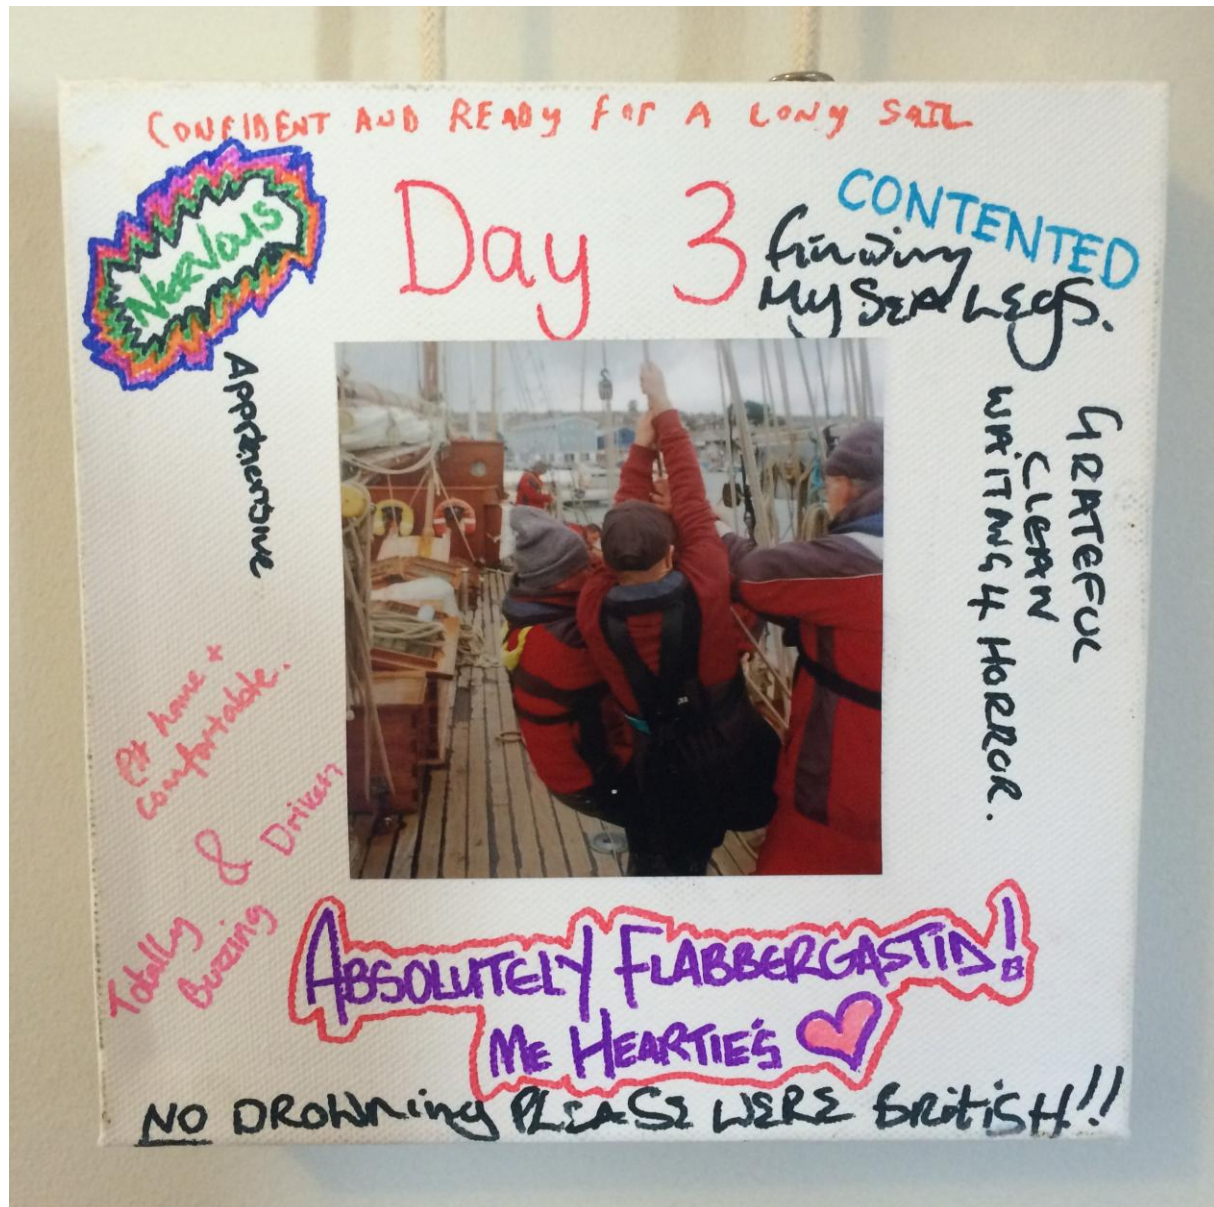 CONFIDENT AND READY FOR A LONG SAIL
NERVOUS
Day 3
CONTENTED
finding
MY SEA LEGS.
APPREHENSIVE
GRATEFUL
CLEAN
WAITING 4 HORROR.
At home +
comfortable.
Totally
Buzzing
& Driven
ABSOLUTELY FLABBERGASTID!
ME HEARTIE'S
NO DROWNING PLEASE WERE BRITISH!!